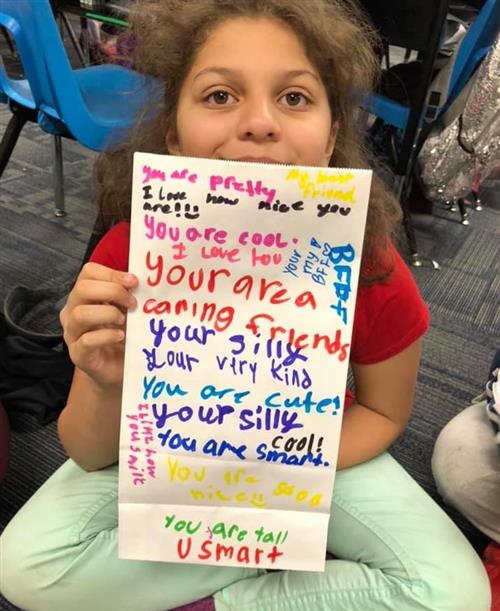 you are pretty
My best
friend
I Love how nice you
are!!
You are cool.
I Love You
your
my
BFF
BFBF
your are a
caring friends
your silly
your very kind
You are cute!
your silly
cool!
You are smart.
I like how
you smile
You are sooo
nice
You are tall
U Smart